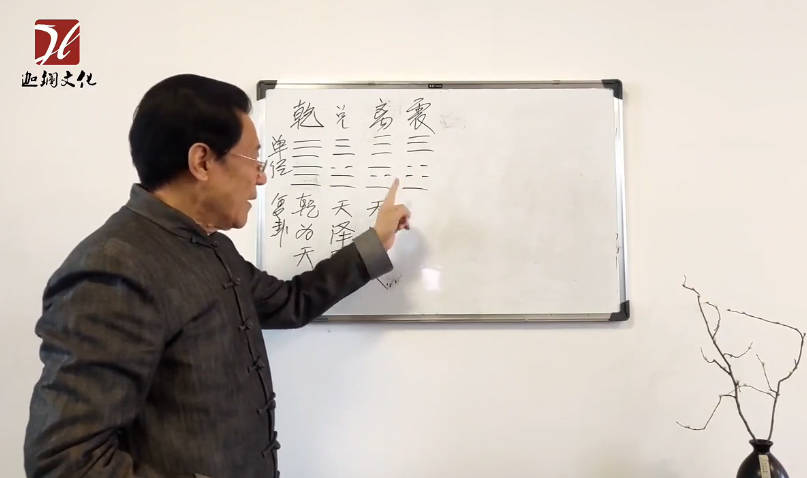 文化
乾 兑 离 震
单
复卦
乾为天
天泽
天